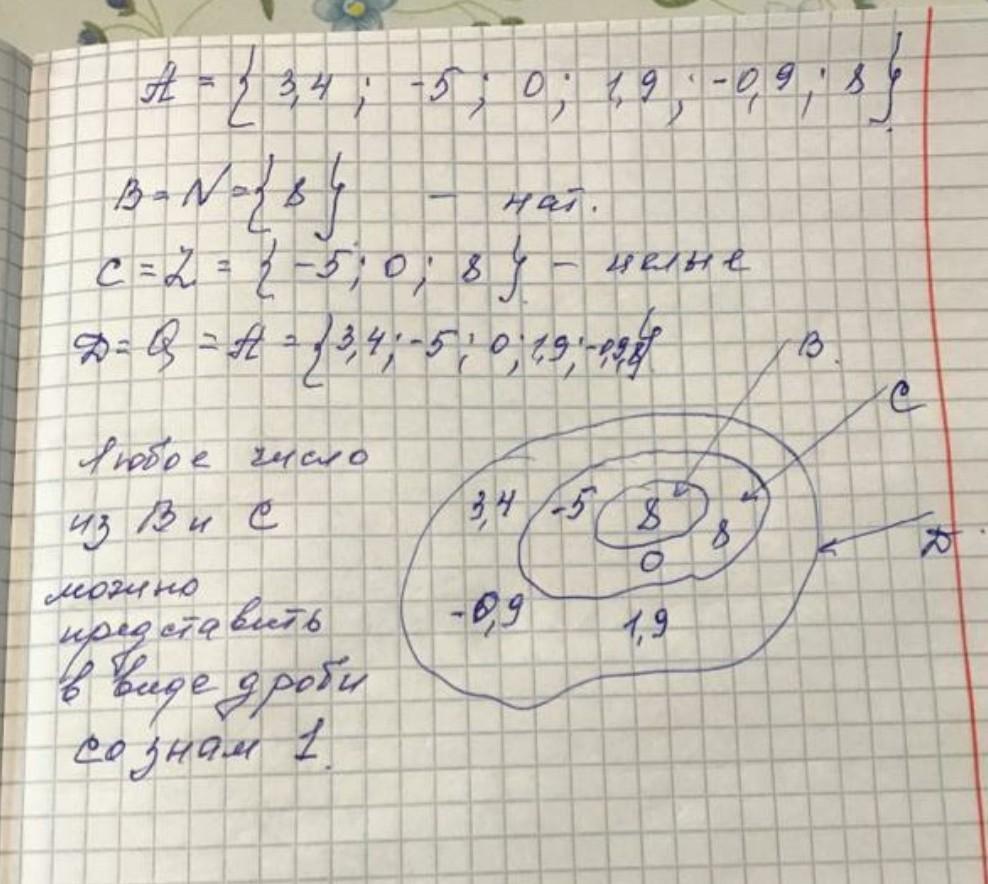 A = { 3,4 ; -5 ; 0 ; 1,9 ; -0,9 ; 8 }
B = N = { 8 } - нат.
C = Z = { -5 ; 0 ; 8 } - целые
D = Q = A = { 3,4 ; -5 ; 0 ; 1,9 ; -0,9; 8 }
B
C
Любое число
из B и C
можно
представить
в виде дроби
со знам 1.
3,4 -5 8 8
0
D
-0,9 1,9